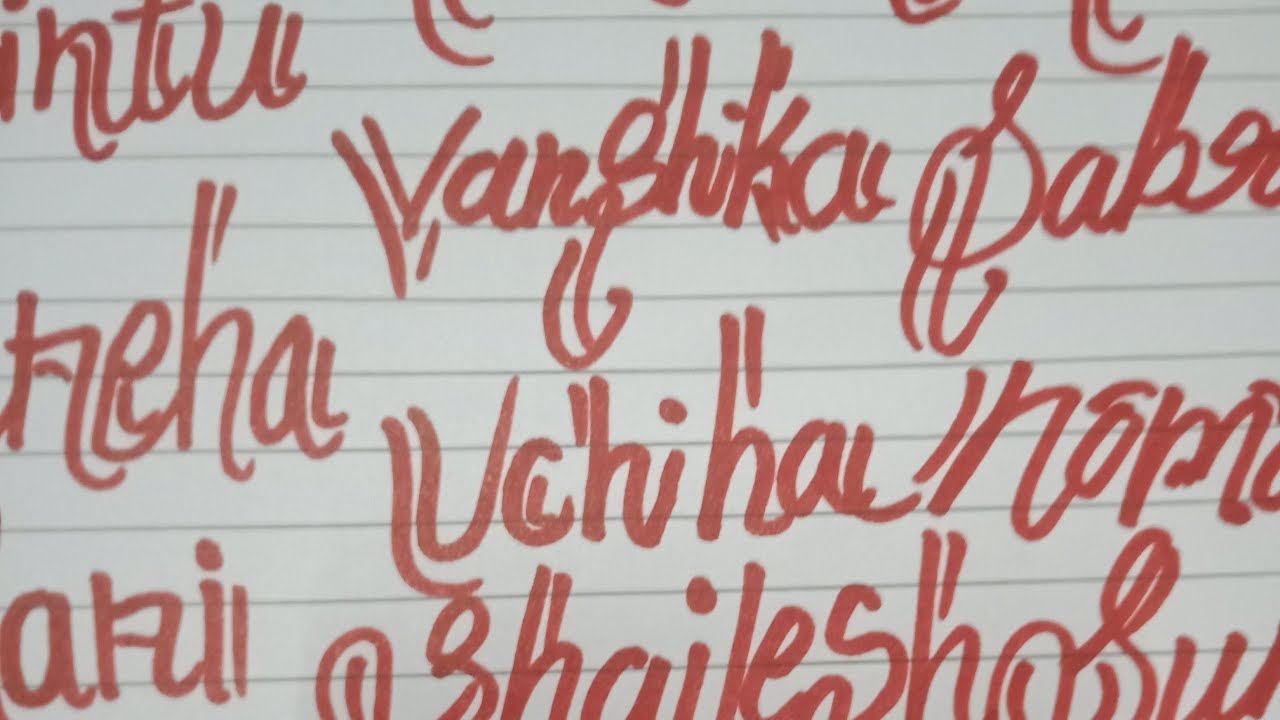 intu Vanshika Sab
neha Uchiha nom
ari Shailesh Su